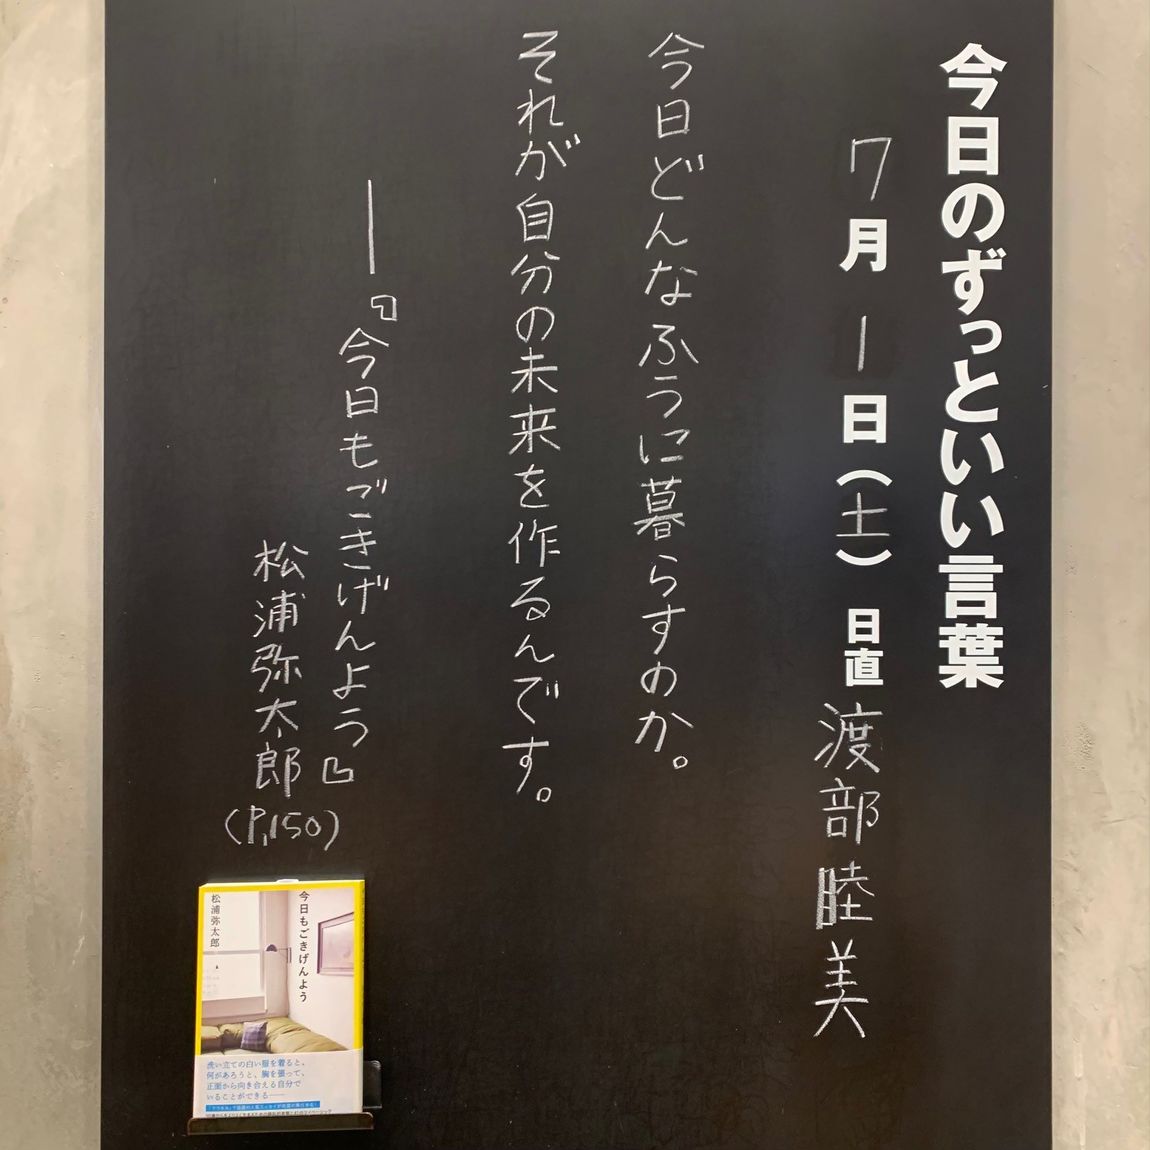 今日のずっといい言葉
7月1日(土) 日直 渡部睦美
今日どんなふうに暮らすのか。
それが自分の未来を作るんです。
―『今日もごきげんよう』
松浦弥太郎
(P,150)
今日もごきげんよう
松浦弥太郎
洗い立ての白い服を着ると、
何があろうと、胸を張って、
正面から向き合える自分で
いることができる――